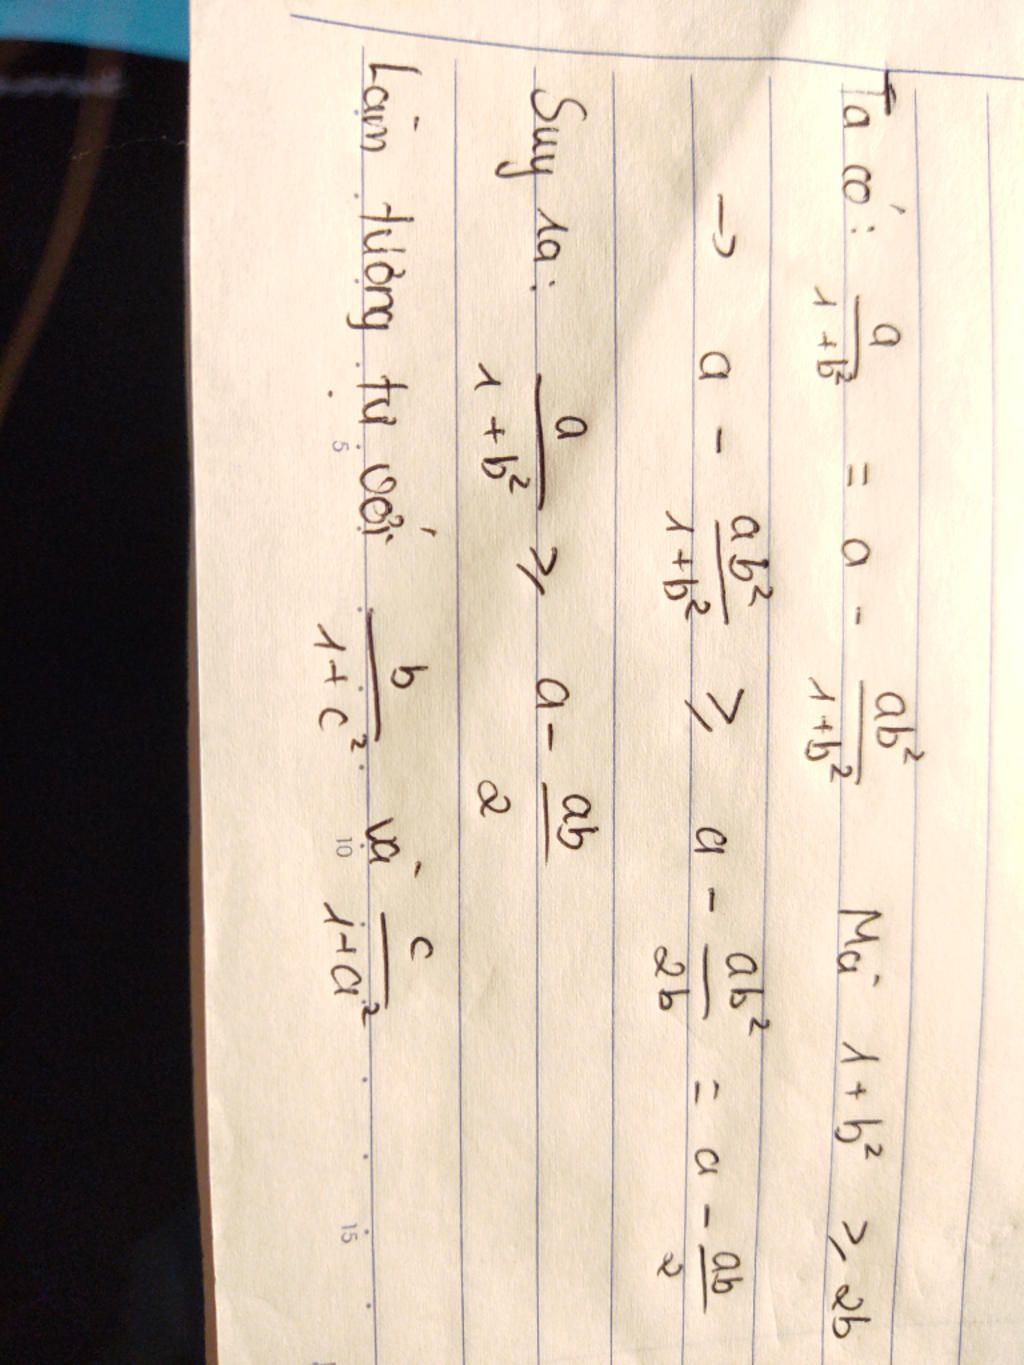 Ta có: a/(1+b²) = a - ab²/(1+b²) Mà 1+b² ≥ 2b
→ a - ab²/(1+b²) ≥ a - ab²/2b = a - ab/2
Suy ra: a/(1+b²) ≥ a - ab/2
Làm tương tự với b/(1+c²) và c/(1+a²)
5 10 15